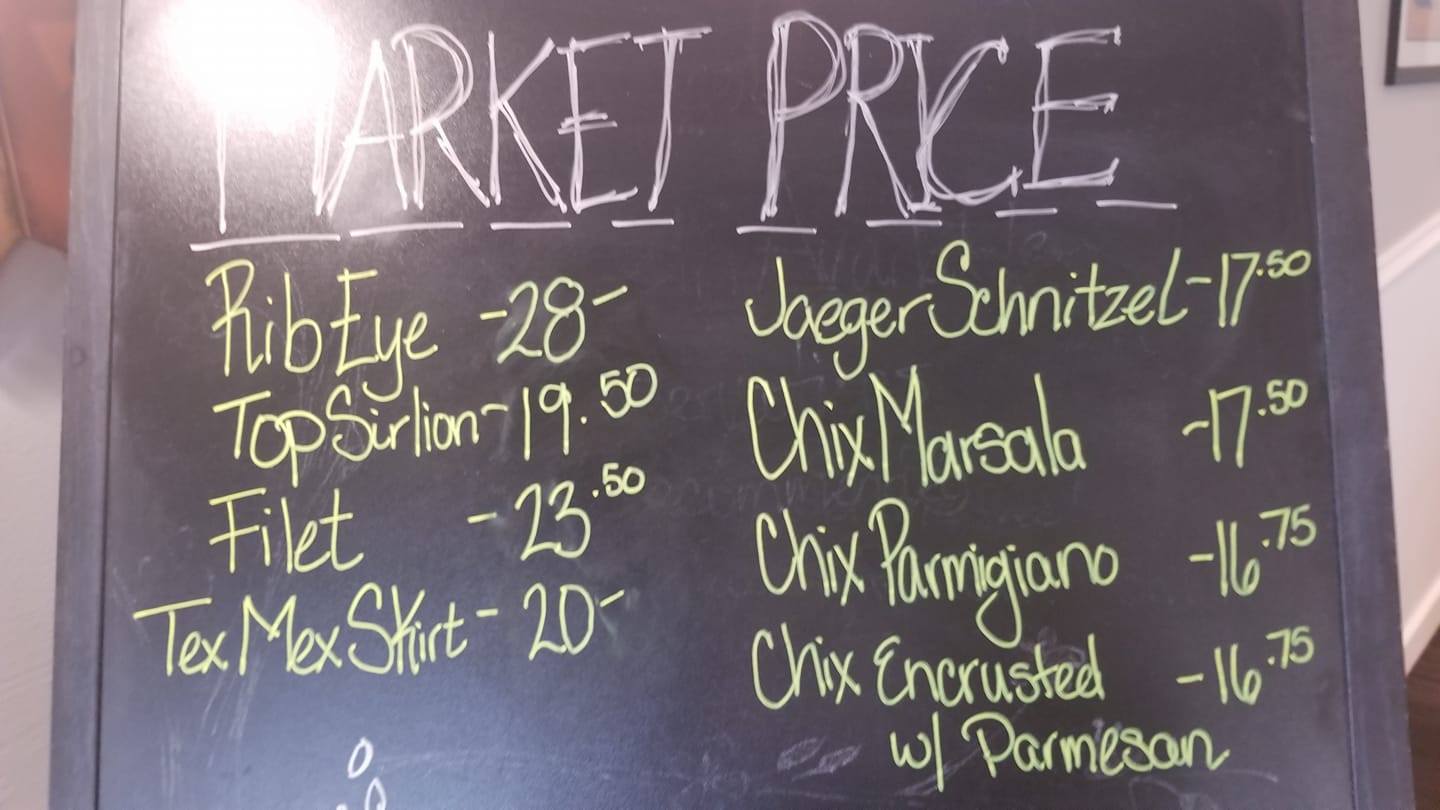 MARKET PRICE
RibEye -28-
Top Sirlion-19.50
Filet -23.50
Tex Mex Skirt-20-
Jaeger Schnitzel-17.50
Chix Marsala -17.50
Chix Parmigiano -16.75
Chix Encrusted -16.75
w/ Parmesan